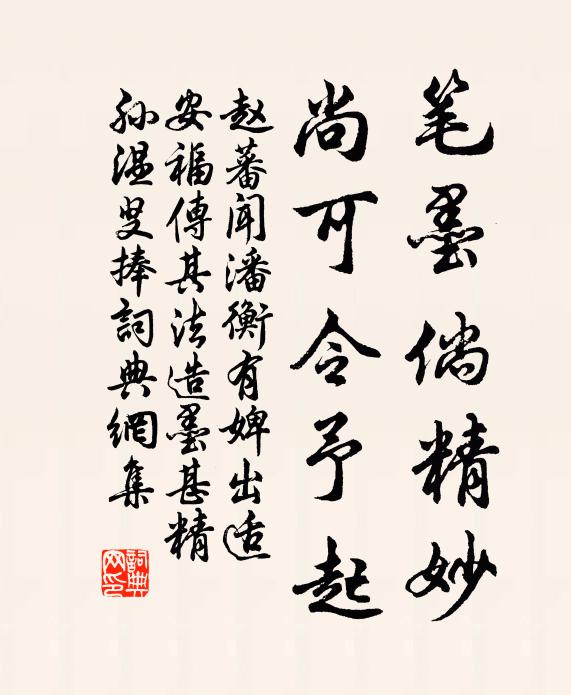 笔墨倘精妙
尚可令予起
赵蕃闻潘衡有婢出适
安福傳其法造墨甚精
孙温叟捧詞典網集
詞典网印